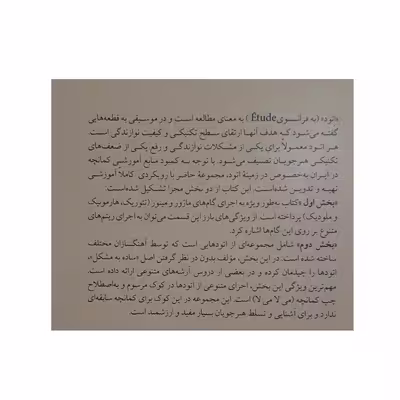 «اتود» (به فرانسویÉtude ) به معنای مطالعه است و در موسیقی به قطعه‌هایی
گفته می‌شود که هدف آنها ارتقای سطح تکنیکی و کیفیت نوازندگی است.
هر اتود معمولاً برای یکی از مشکلات نوازندگی و رفع یکی از ضعف‌های
تکنیکی هنرجویان تصنیف می‌شود. با توجه به کمبود منابع آموزشی کمانچه
در ایران به‌خصوص در زمینهٔ اتود، مجموعهٔ حاضر با رویکردی کاملاً آموزشی
تهیه و تدوین شده‌است. این کتاب از دو بخش مجزا تشکیل شده‌است:
«بخش اول» کتاب به‌طور ویژه به اجرای گام‌های ماژور و مینور (تئوریک، هارمونیک
و ملودیک) پرداخته است. از ویژگی‌های بارز این قسمت می‌توان به اجرای ریتم‌های
متنوع بر روی این گام‌ها اشاره کرد.
«بخش دوم» شامل مجموعه‌ای از اتودهایی است که توسط آهنگسازان مختلف
ساخته شده است. در این بخش، مؤلف بدون در نظر گرفتن اصل «ساده به مشکل»،
اتودها را چیدمان کرده و در بعضی از دروس آرشه‌های متنوعی ارائه داده است.
مهم‌ترین ویژگی این بخش، اجرای متنوعی از اتودها در کوک مرسوم و به‌اصطلاح
چپ کمانچه (می لا می لا) است. این مجموعه در این کوک برای کمانچه سابقه‌ای
ندارد و برای آشنایی و تسلط هنرجویان بسیار مفید و ارزشمند است.